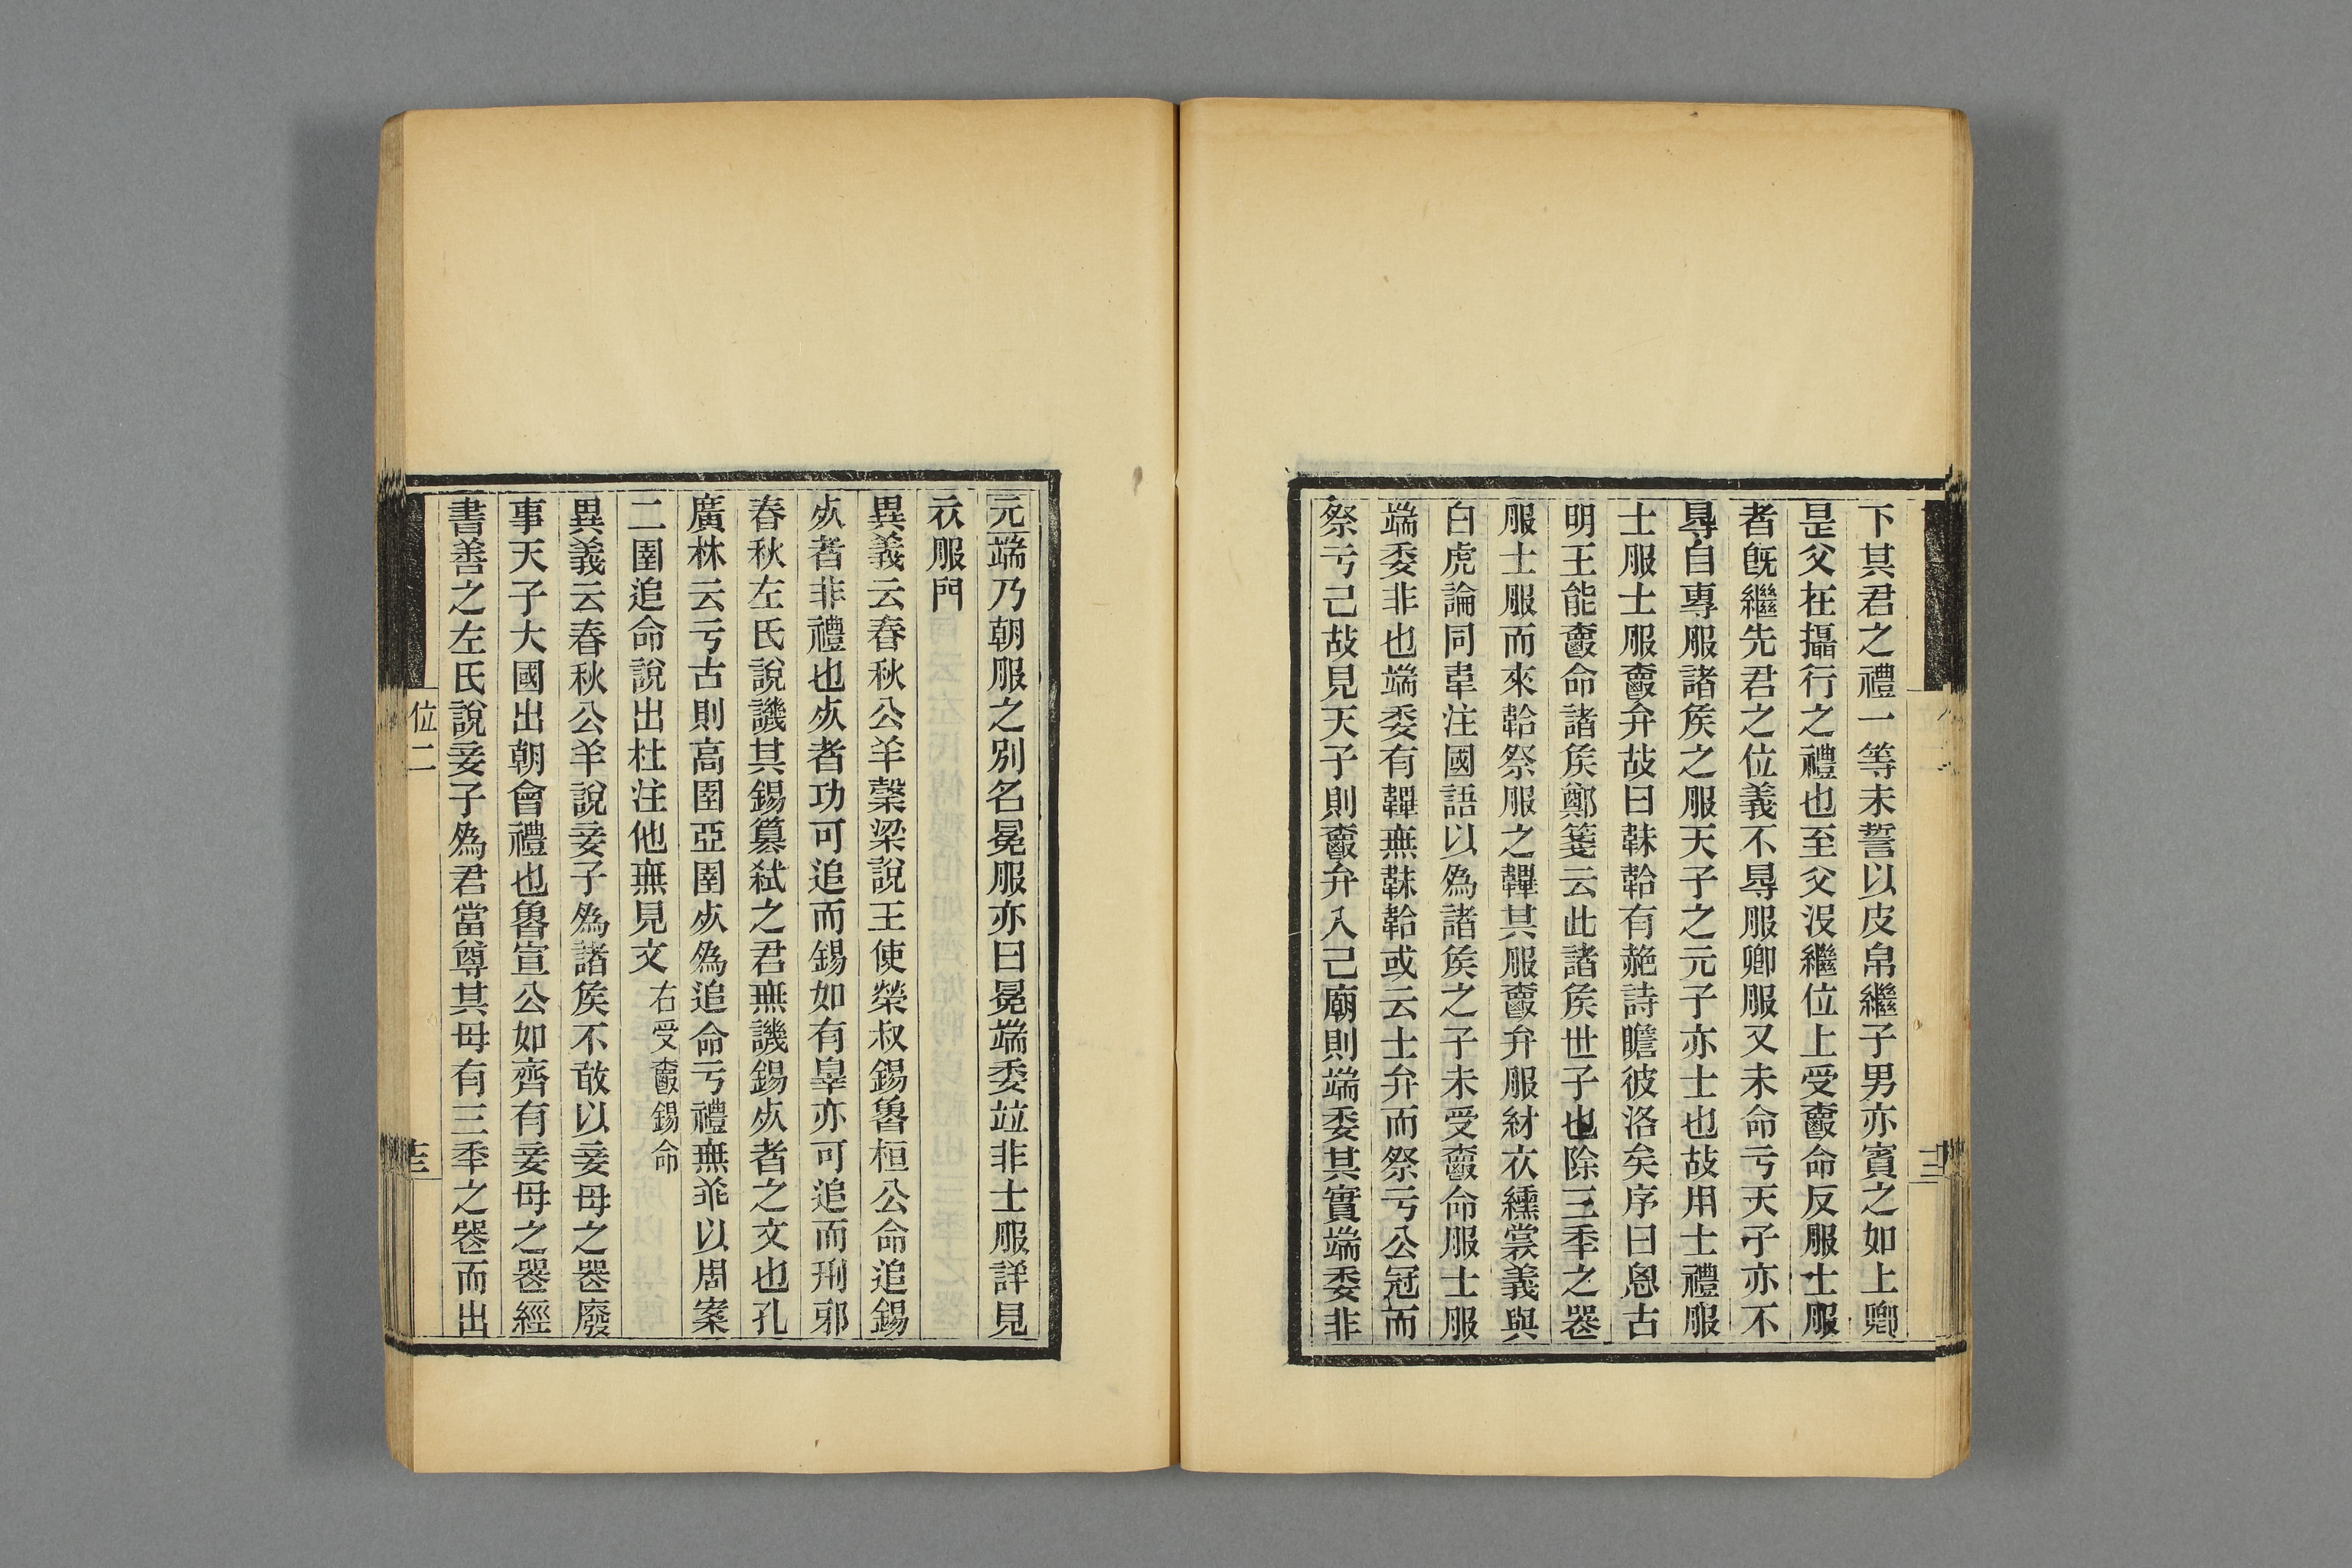 下其君之禮一等未誓以皮帛繼子男亦賓之如上卿
是父在攝行之禮也至父沒繼位上受爵命反服士服
者旣繼先君之位義不㝵服卿服又未命亏天子亦不
㝵自專服諸矦之服天子之元子亦士也故用士禮服
士服士服爵弁故曰韎韐有赩詩瞻彼洛矣序曰恖古
明王能爵命諸矦鄭箋云此諸矦世子也除三秊之喪
服士服而來韐祭服之韠其服爵弁服紂衣纁裳義與
白虎論同韋注國語以爲諸矦之子未受爵命服士服
端委非也端委有韠無韎韐或云士弁而祭亏公冠而
祭亏己故見天子則爵弁入己廟則端委其實端委非
元端乃朝服之別名冕服亦曰冕端委竝非士服詳見
衣服門
異義云春秋公羊穀梁說王使榮叔錫魯桓公命追錫
㱙者非禮也㱙者功可追而錫如有辠亦可追而刑邪
春秋左氏說譏其錫篡弒之君無譏錫㱙者之文也孔
廣林云亏古則高圉亞圉㱙爲追命亏禮無乖以周案
二圉追命說出杜注他無見文 右受爵錫命
異義云春秋公羊說妾子爲諸矦不敢以妾母之喪廢
事天子大國出朝會禮也魯宣公如齊有妾母之喪經
書善之左氏說妾子爲君當尊其母有三秊之喪而出
位二